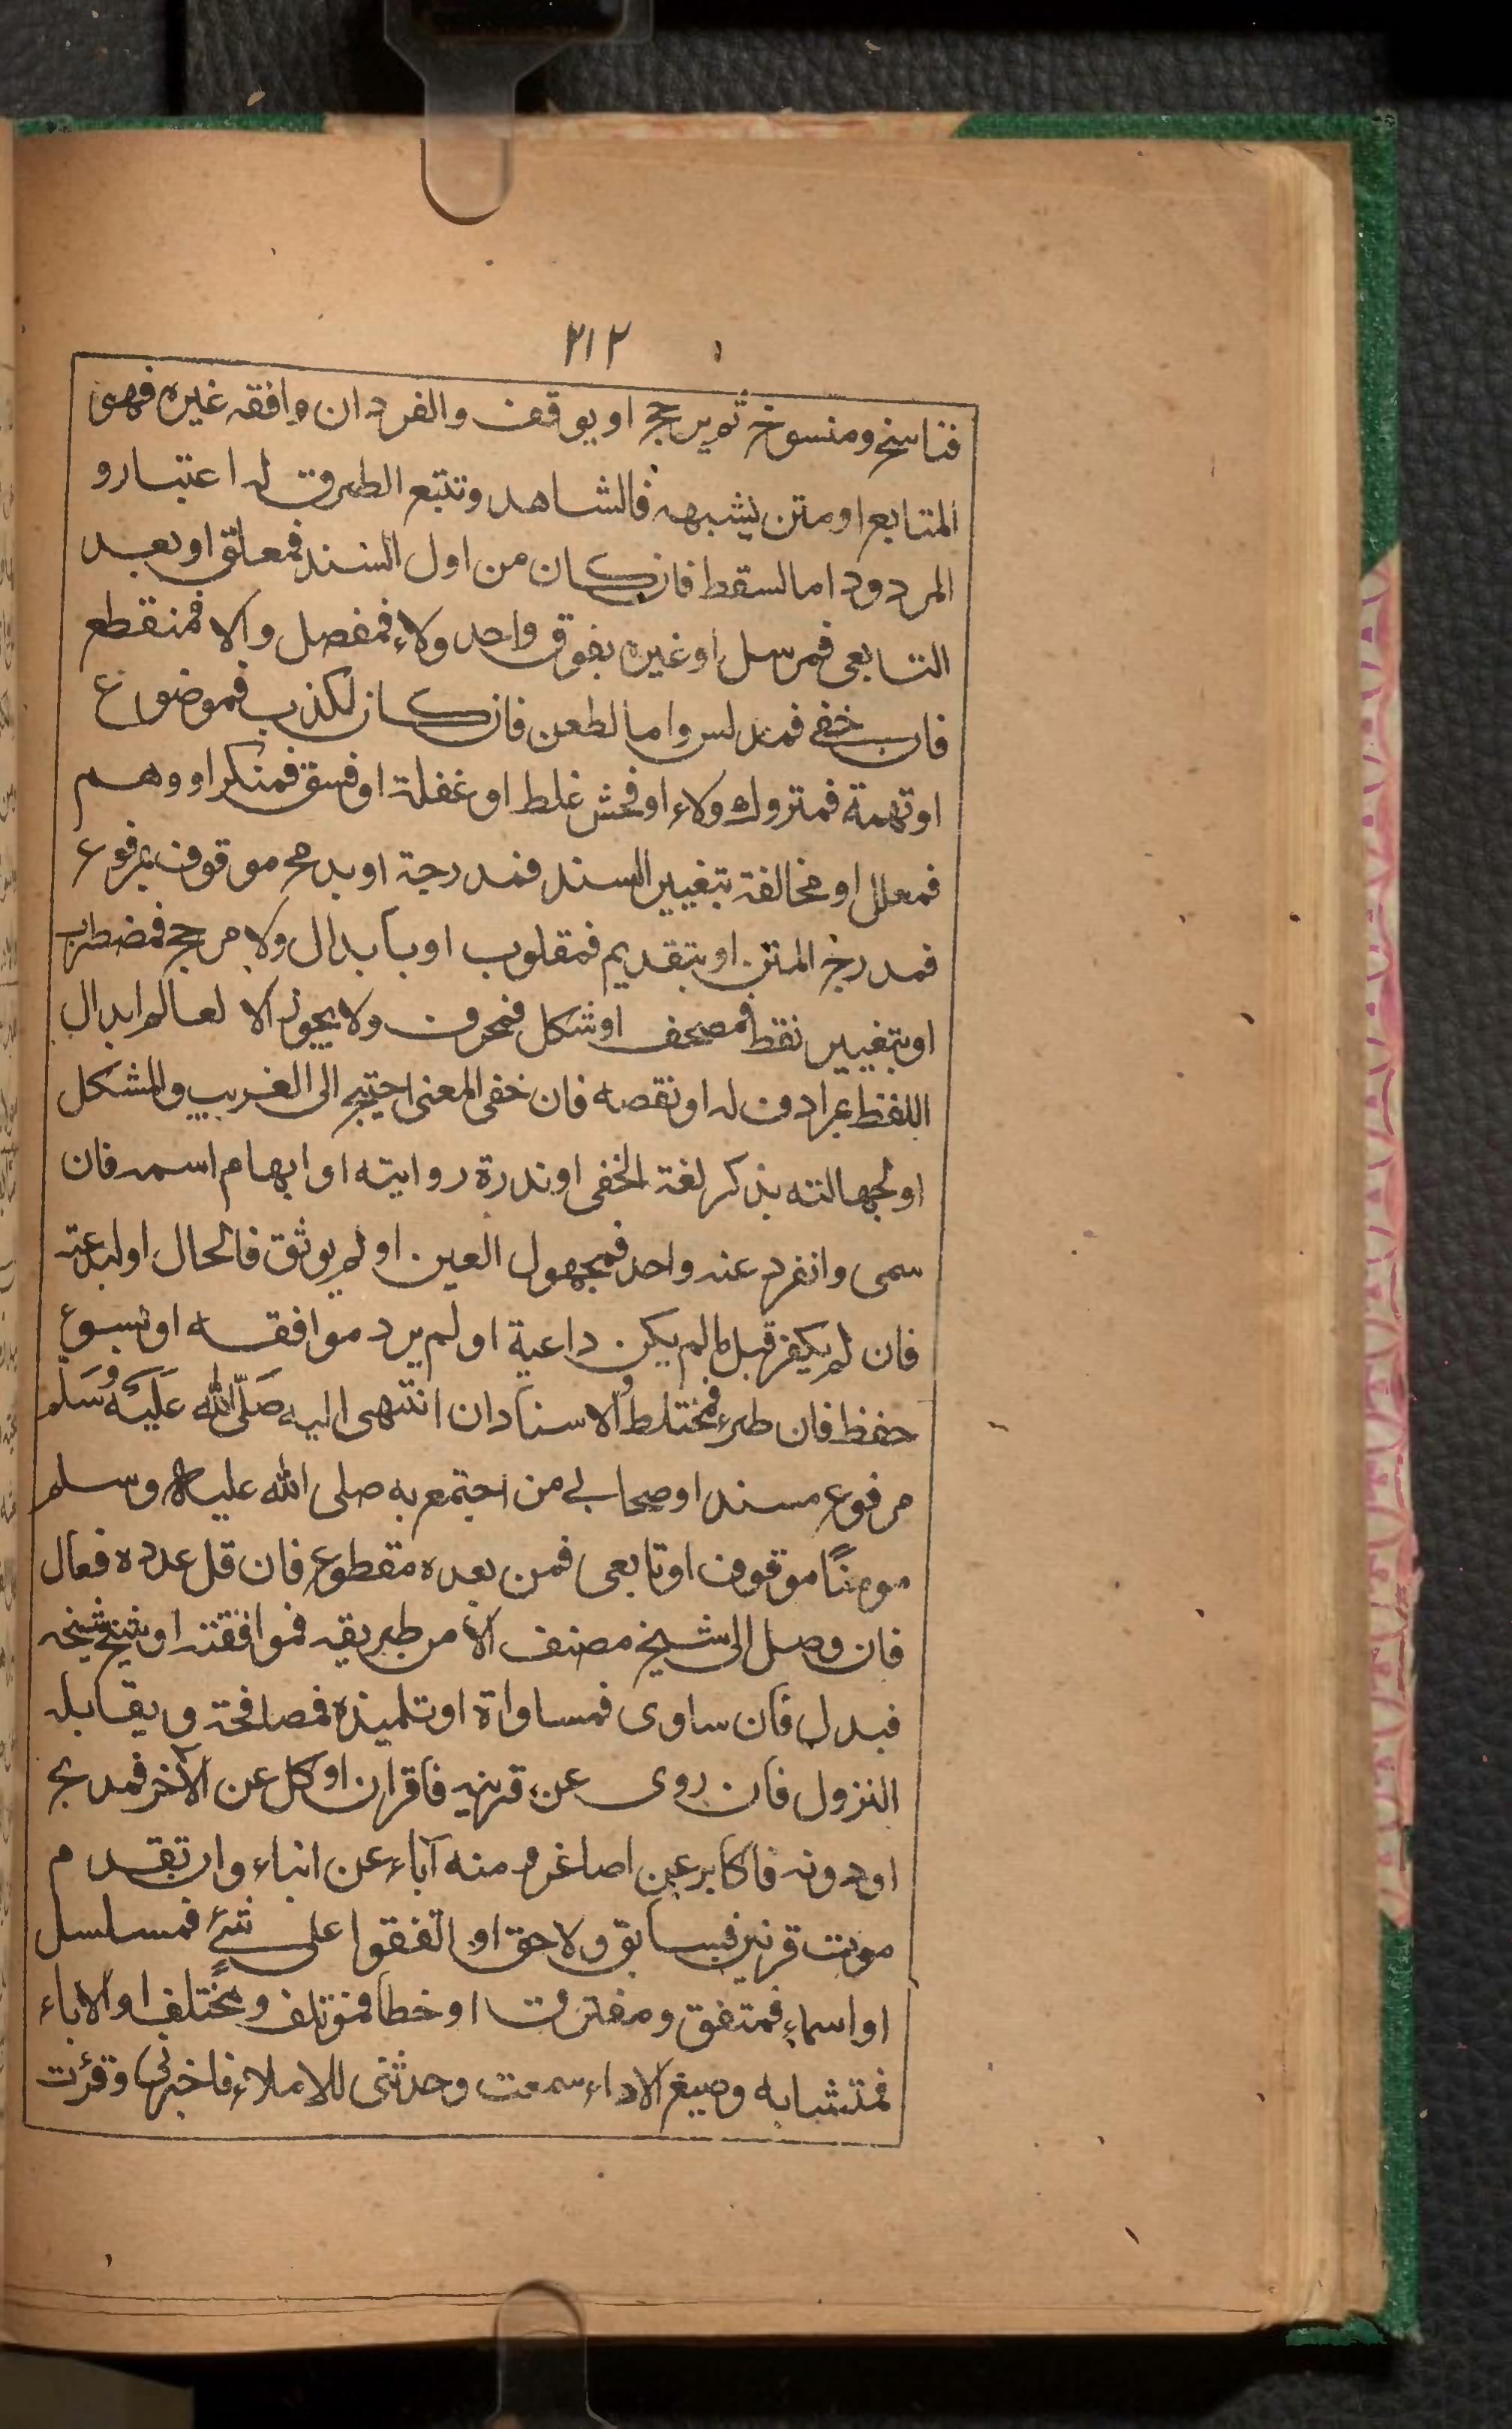 ۲۱۲
فناسخ ومنسوخ ثم يرجح او يوقف والفرد ان وافقه غيره فهى
المتابع او متن يشبهه فالشاهد وتتبع الطرق له اعتبار و
المردود اما لسقط فان كان من اول السند فمعلق او بعد
التابعى فمرسل او غيره بفوق واحد ولاء فمفصل والا فمنقطع
فان خفى فمدلس واما لطعن فان كان لكذب فموضوع
او تهمة فمتروك ولاء او فحش غلط او غفلة او فسق فمنكر او وهم
فمعلل او مخالفة بتغيير السند فمدرجة او بدمج موقوف بمرفوع
فمدرج المتن او بتقديم فمقلوب او بابدال ولا مرجح فمضطرب
او بتغيير نقط فمصحف او شكل فمحرف ولا يجوز الا لعالم ابدال
اللفظ بمرادف له او نقصه فان خفى المعنى احتيج الى الغريب والمشكل
او لجهالته بذكر لغة الخفى او ندرة روايته او ابهام اسمه فان
سمى وانفرد عنه واحد فمجهول العين او لم يوثق فالحال او لبدعته
فان لم يكفر قبل ما لم يكن داعية او لم يرد موافقه او لسوء
حفظ فان طرء فمختلط والاسناد ان انتهى اليه صَلّى الله عَلَيْهِ وَسَلّم
مرفوع مسند او صحابى من اجتمع به صلى الله عليه وسلم
مومنًا موقوف او تابعى فمن بعده مقطوع فان قل عدده فعال
فان وصل الى شيخ مصنف الا من طريقه فموافقته او شيخ شيخه
فبدل فان ساوى فمساواة او تلميذه فمصافحة ويقابله
النزول فان روى عن قرينه فاقران او كل عن الآخر فمدبج
او دونه فاكابر عن اصاغر و منه آباء عن ابناء وان تقدم
موت قرنيه فسابق ولاحق او اتفقوا على شئ فمسلسل
او اسماء فمتفق ومفترق او خطا فمؤتلف ومختلف او الاباء
فمتشابه وصيغ الاداء سمعت وحدثنى للاملاء فاخبرنى وقرئت